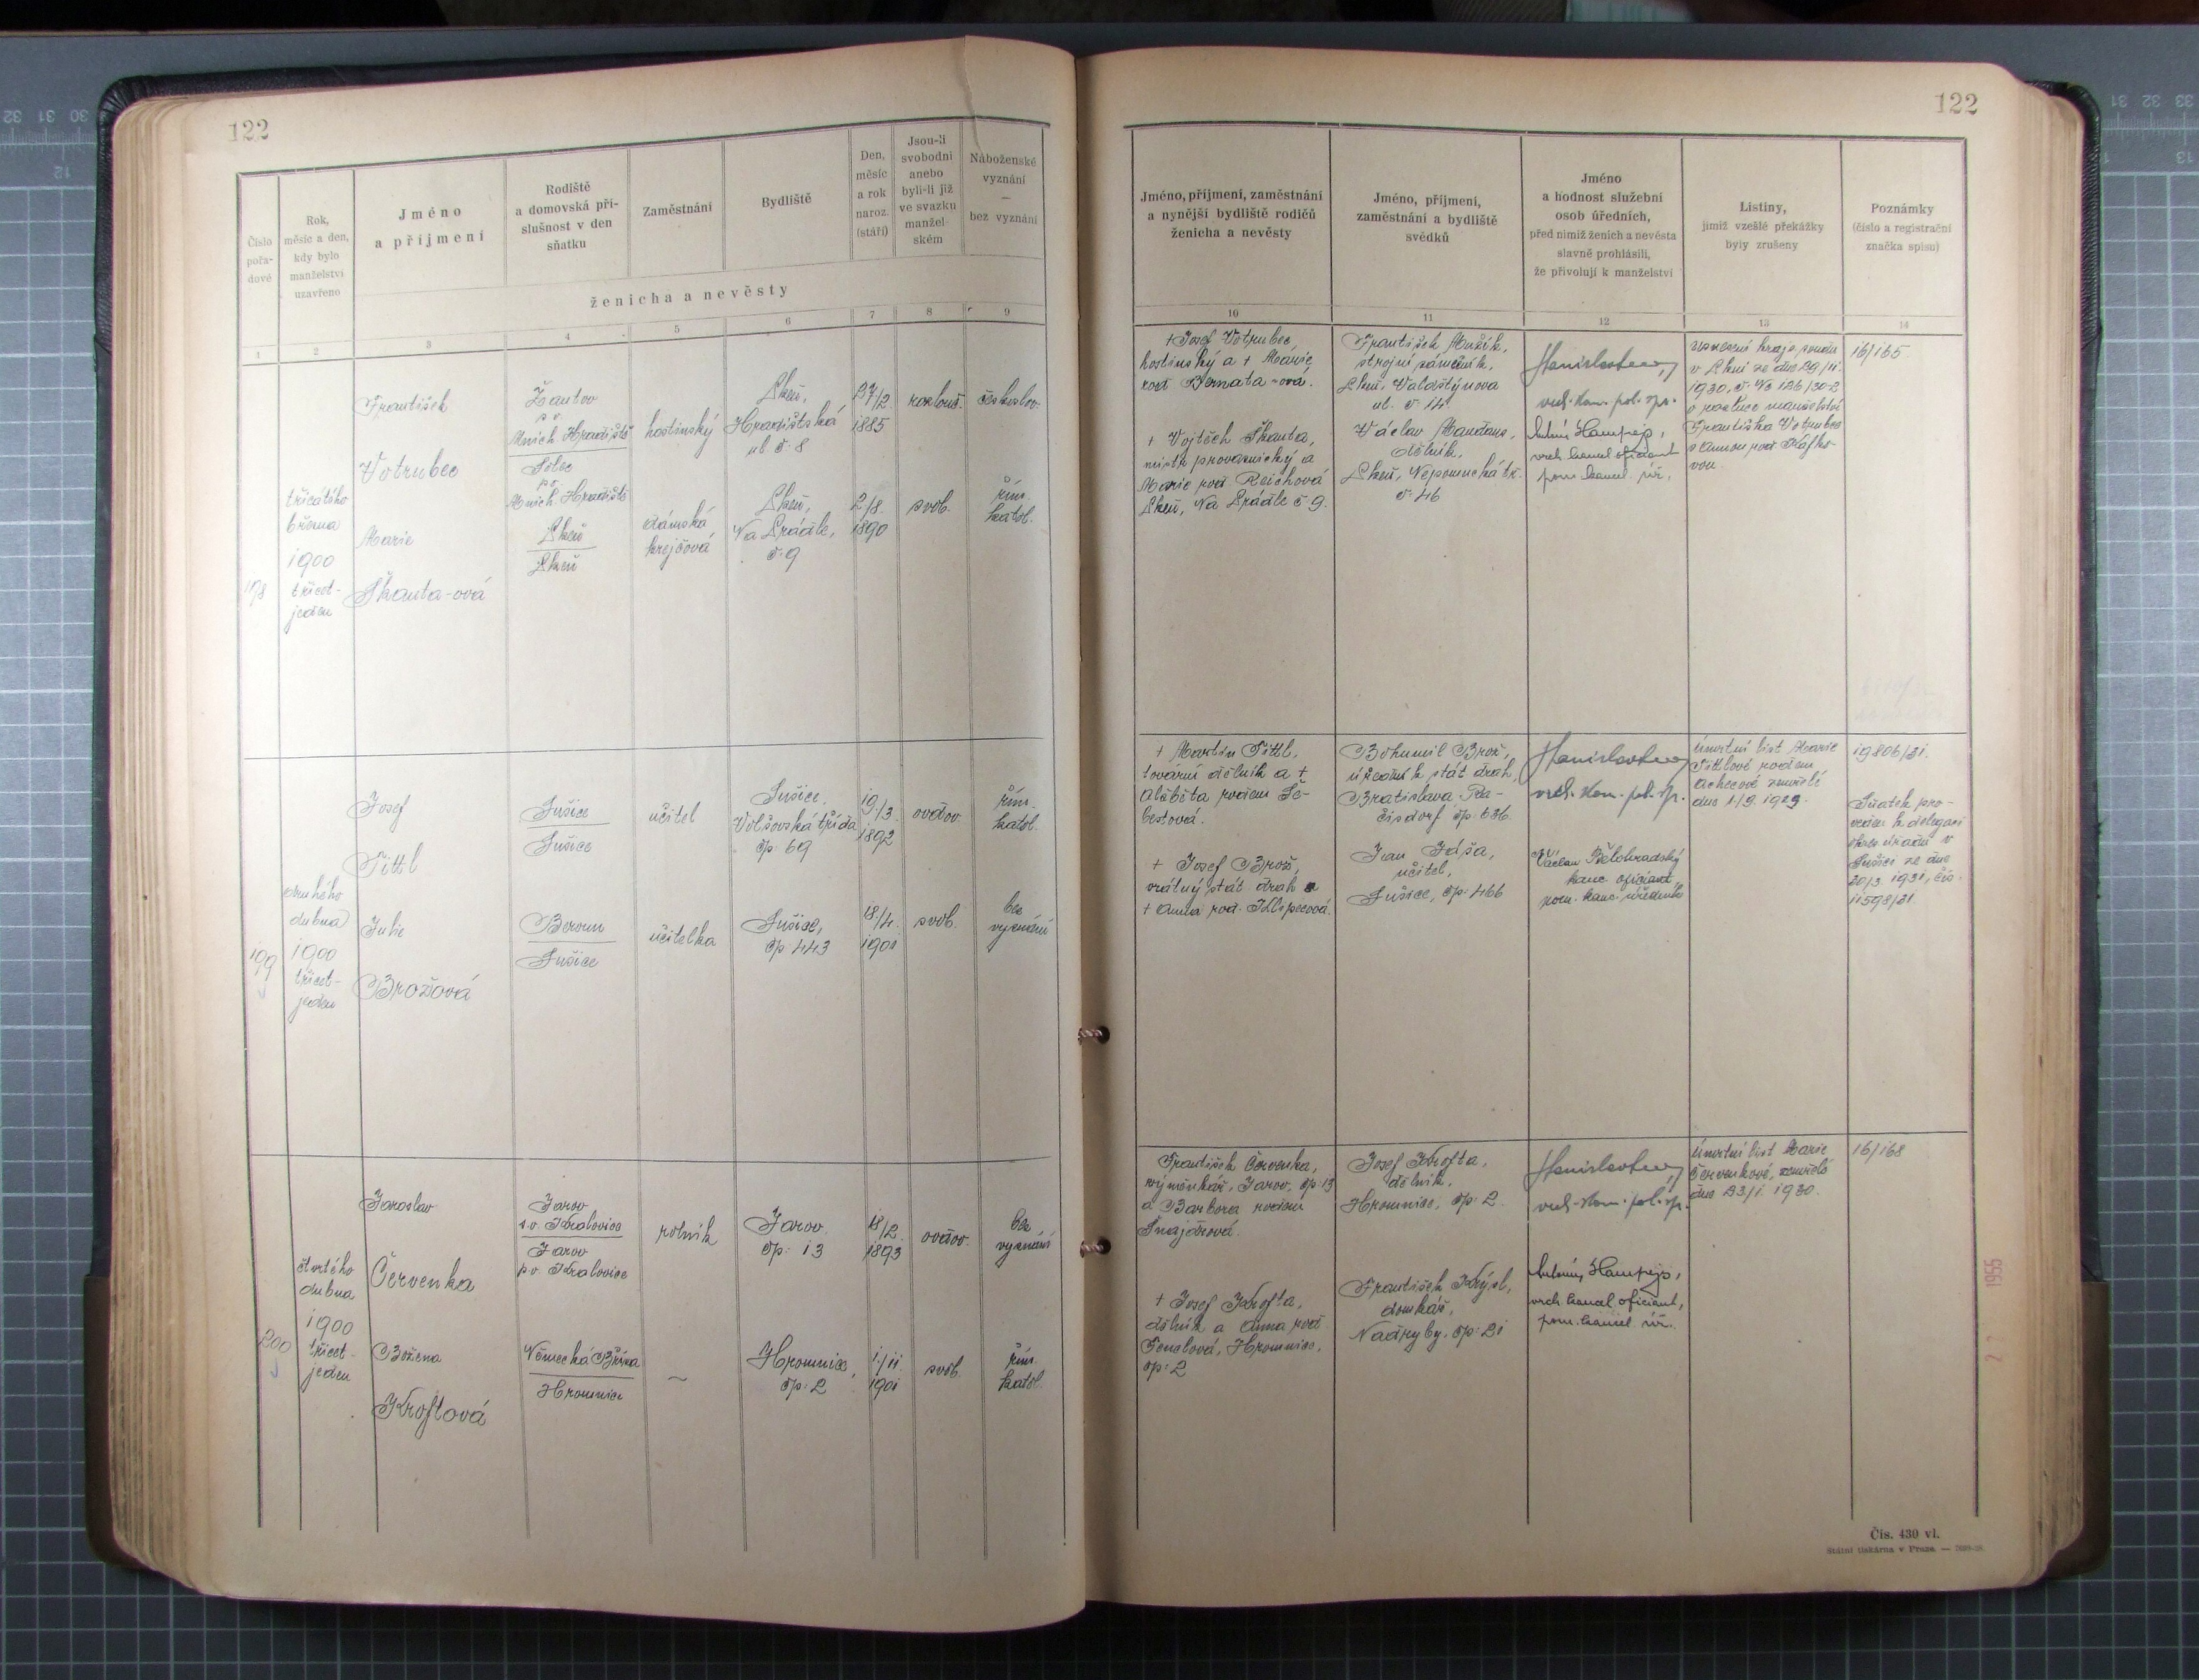 122
Číslo
pořa-
dové
Rok,
měsíc a den,
kdy bylo
manželství
uzavřeno
Jméno
a příjmení
Rodiště
a domovská pří-
slušnost v den
sňatku
Zaměstnání
Bydliště
Den,
měsíc
a rok
naroz.
(stáří)
Jsou-li
svobodni
anebo
byli-li již
ve svazku
manžel-
ském
Náboženské
vyznání
—
bez vyznání
ženicha a nevěsty
1
2
3
4
5
6
7
8
9
198
třicátého
března
1900
třicet-
jeden
František
Votrubec
Žantov
p. o.
Mnich. Hradiště
p. o.
Mnich. Hradiště
hostinský
Plzeň,
Hradištská
ul č. 8
27/2.
1885
rozlouč.
českoslov.
Marie
Škanta-ová
Plzeň
Plzeň
dámská
krejčová
Plzeň,
Na Prádle,
č. 9
2/8.
1890
svob.
řím.
katol.
199
druhého
dubna
1900
třicet-
jeden
Josef
Tittl
Sušice
Sušice
učitel
Sušice,
Volšovská třída
čp. 69
19/3.
1892
ovdov.
řím.
katol.
Julie
Brožová
Beroun
Sušice
učitelka
Sušice,
čp. 443
18/4.
1901
svob.
bez
vyznání
200
čtvrtého
dubna
1900
třicet-
jeden
Jaroslav
Červenka
Jarov
s. o. Kralovice
Jarov
p. o. Kralovice
rolník
Jarov
čp. 13
18/2.
1893
ovdov.
bez
vyznání
Božena
Kroftová
Německá Bříza
Hromnice
~
Hromnice,
čp. 2
1/11.
1901
svob.
řím.
katol.
122
Jméno, příjmení, zaměstnání
a nynější bydliště rodičů
ženicha a nevěsty
Jméno, příjmení,
zaměstnání a bydliště
svědků
Jméno
a hodnost služební
osob úředních,
před nimiž ženich a nevěsta
slavně prohlásili,
že přivolují k manželství
Listiny,
jimiž vzešlé překážky
byly zrušeny
Poznámky
(číslo a registrační
značka spisu)
10
11
12
13
14
+ Josef Votrubec,
hostinský a + Marie
rod. Bernata-ová.
+ Vojtěch Škanta,
mistr provaznický a
Marie rod. Reichová
Plzeň, Na Prádle č. 9.
František Mužík,
strojní zámečník,
Plzeň, Valdštýnova
ul. č. 14.
Václav Mandaus,
dělník,
Plzeň, Nepomucká tř.
č. 46
vrch. kom. pol. spr.
Antonín Hampejs,
vrch. kancel. oficiant
pom. kancel. úř.
usnesení kraj. soudu
v Plzni ze dne 29/11.
1930, č.
o rozluce manželství
Františka Votrubce
s Annou rod. Kafko-
vou.
16/165
+ Martin Tittl,
tovární dělník a +
Alžběta rozená Še-
bestová.
+ Josef Brož,
vrátný stát. drah a
+ Anna rod. Klipecová.
Bohumil Brož,
úředník stát. drah,
Bratislava, Ra-
čišdorf čp. 636.
Jan Jdža,
učitel,
Sušice, čp. 466
vrch. kom. pol. sp.
Václav Bělohradský
kanc. oficiant
pom. kanc. úředník
Úmrtní list Marie
Tittlové rozené
zemřelé
dne 1/9. 1929.
19806/31.
Sňatek pro-
veden k delegaci
okres. úřadu v
Sušici ze dne
20/3. 1931, čís.
11598/31.
František Červenka,
výměnkář, Jarov, čp. 13
a Barbora rozená
Šnajdrová.
+ Josef Krofta,
dělník a Anna rod.
Hromnice,
čp. 2
Josef Krofta,
dělník,
Hromnice, čp. 2.
František Krýsl,
domkář,
Nadryby, čp. 21
vrch. kom. pol. sp.
Antonín Hampejs,
vrch. kancel. oficiant,
pom. kancel. úř.
Úmrtní list Marie
Červenkové, zemřelé
dne 23/1. 1930.
16/168
1955
Čís. 430 vl.
Státní tiskárna v Praze. —